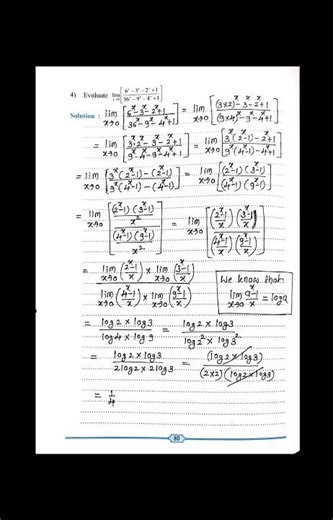 4) Evaluate lim x→0 [6ˣ-3ˣ-2ˣ+1 / 36ˣ-9ˣ-4ˣ+1]
Solution : lim x→0 [6ˣ-3ˣ-2ˣ+1 / 36ˣ-9ˣ-4ˣ+1] = lim x→0 [(3×2)ˣ-3ˣ-2ˣ+1 / (9×4)ˣ-9ˣ-4ˣ+1]
= lim x→0 [3ˣ·2ˣ-3ˣ-2ˣ+1 / 9ˣ·4ˣ-9ˣ-4ˣ+1] = lim x→0 [3ˣ(2ˣ-1)-2ˣ+1 / 9ˣ(4ˣ-1)-4ˣ+1]
= lim x→0 [3ˣ(2ˣ-1)-(2ˣ-1) / 9ˣ(4ˣ-1)-(4ˣ-1)] = lim x→0 [(2ˣ-1)(3ˣ-1) / (4ˣ-1)(9ˣ-1)]
= lim x→0 [(2ˣ-1)(3ˣ-1)/x² / (4ˣ-1)(9ˣ-1)/x²] = lim x→0 [(2ˣ-1/x)(3ˣ-1/x) / (4ˣ-1/x)(9ˣ-1/x)]
= lim x→0 (2ˣ-1/x) × lim x→0 (3ˣ-1/x) / lim x→0 (4ˣ-1/x) × lim x→0 (9ˣ-1/x)
We know that
lim x→0 aˣ-1/x = log a
= log 2 × log 3 / log 4 × log 9 = log 2 × log 3 / log 2² × log 3²
= log 2 × log 3 / 2 log 2 × 2 log 3 = (log 2 × log 3) / (2×2)(log 2 × log 3)
= 1/4
80